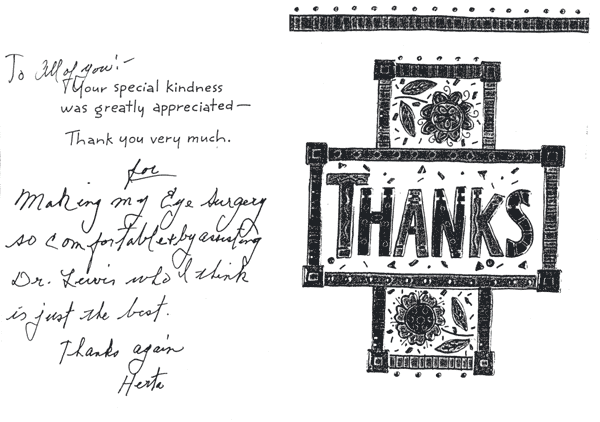 To All of you!-
Your special kindness
was greatly appreciated—
Thank you very much.
for
Making my Eye Surgery
so comfortable & by assisting
Dr. Lewis who I think
is just the best.
Thanks again
Herta
THANKS